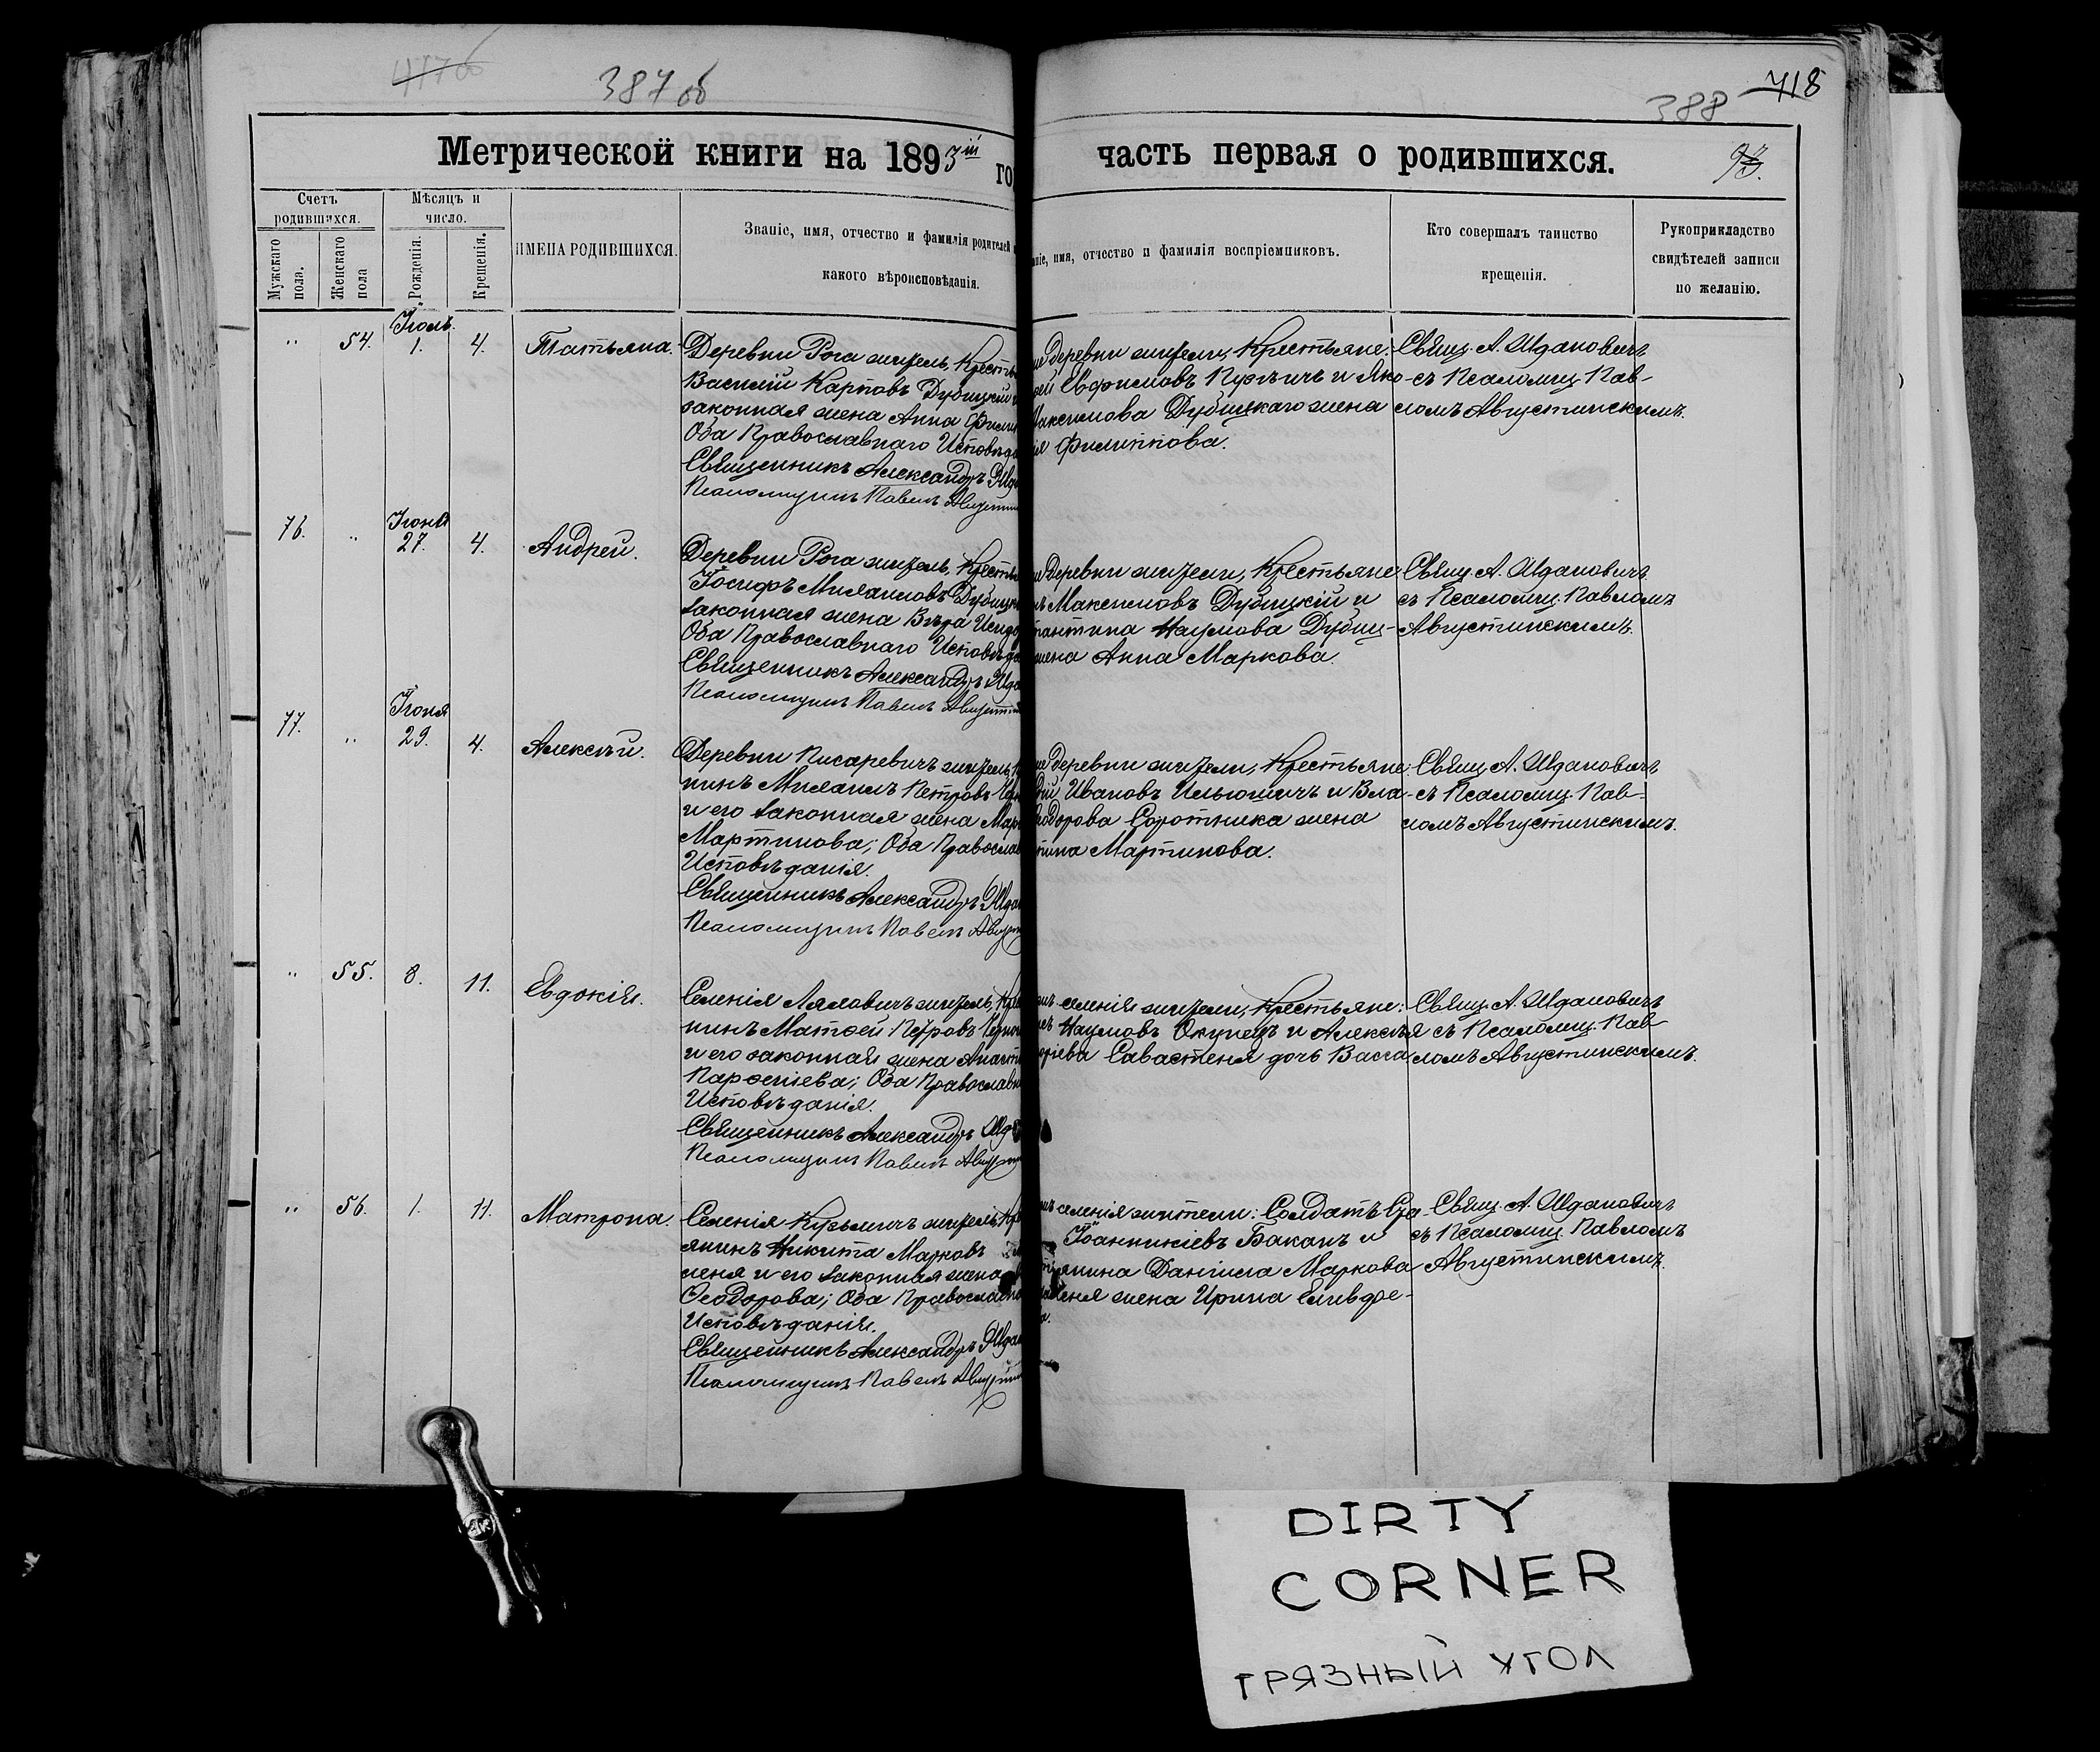 387 об
388
718
Метрической книги на 1893ій го
часть первая о родившихся.
93.
Счетъ родившихся.
Мужскаго пола.
Женскаго пола
Мѣсяцъ и число.
Рожденія.
Крещенія.
ИМЕНА РОДИВШИХСЯ.
Званіе, имя, отчество и фамилія родителей
какого вѣроисповѣданія.
имя, отчество и фамилія воспріемниковъ.
Кто совершалъ таинство
крещенія.
Рукоприкладство
свидѣтелей записи
по желанію.
" 54. Іюль. 1. 4. Татьяна.
Деревни Рога житель, Кресть
Василій Карповъ Дубицкій и
законная жена Анна Фили
Оба Православнаго Исповѣда
Священникъ Александръ Жда
Псаломщикъ Павелъ Августи
деревни жители, Крестьяне:
Евфимовъ Курьичъ и Яко-
Максимова Дубицкаго жена
Филиппова.
Свящ. А. Ждановичъ
съ Псаломщ. Пав-
ломъ Августинскимъ.
76. " Іюня 27. 4. Андрей.
Деревни Рога житель, Кресть
Іосифъ Михаиловъ Дубицк
законная жена Вѣра Исидо
Оба Православнаго Исповѣда
Священникъ Александръ Жда
Псаломщикъ Павелъ Августи
деревни жители, Крестьяне
Максимовъ Дубицкій и
тантина Наумова Дубиц-
жена Анна Маркова.
Свящ. А. Ждановичъ
съ Псаломщ. Павломъ
Августинскимъ.
77. " Іюня 29. 4. Алексѣй.
Деревни Писаревичъ житель, К
нинъ Михаилъ Петровъ
и его законная жена Мар
Мартинова; Оба Православ
Исповѣданія.
Священникъ Александръ Ждан
Псаломщикъ Павелъ Август
деревни жители, Крестьяне:
Ивановъ Ильюшичъ и Вла-
еодорова Соротника жена
Мартинова.
Свящ. А. Ждановичъ
съ Псаломщ. Пав-
ломъ Августинскимъ.
" 55. 8. 11. Евдокія.
Селенія Ляловичъ житель, Кре
нинъ Матѳей Петровъ
и его законная жена Анаст
Парѳеніева; Оба Православн
Исповѣданія.
Священникъ Александръ Жд
Псаломщикъ Павелъ Август
селенія жители, Крестьяне:
Наумовъ Окунецъ и Алексѣя
Савастеня дочь Васса
Свящ. А. Ждановичъ
съ Псаломщ. Пав-
ломъ Августинскимъ.
" 56. 1. 11. Матрона.
Селенія Кузьмичъ житель, Кре
янинъ Никита Марковъ
леня и его законная жена
Ѳеодорова; Оба Православно
Исповѣданія.
Священникъ Александръ Ждан
Псаломщикъ Павелъ Августи
селенія жители: Солдатъ
Іоанникіевъ Баканъ и
янина Даніила Маркова
леня жена Ирина Елевѳе-
Свящ. А. Ждановичъ
съ Псаломщ. Павломъ
Августинскимъ.
DIRTY
CORNER
ГРЯЗНЫЙ УГОЛ